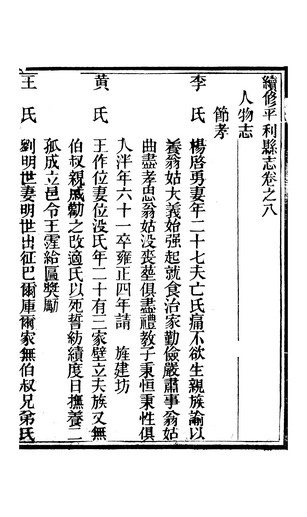 續修平利縣志卷之八
人物志
節孝
李氏 楊啓勇妻年二十七夫亡氏痛不欲生親族諭以
養翁姑大義始强起就食治家勤儉嚴肅事翁姑
曲盡孝忠翁姑没喪塟俱盡禮教子秉恒秉性俱
入泮年六十一卒雍正四年請 旌建坊
黄氏 王作位妻位没氏年二十有三家壁立夫族又無
伯叔親戚勸之改適氏以死誓紡績度日撫養二
孤成立邑令王霔給匾奬勵
王氏 劉明世妻明世出征巴爾庫爾家無伯叔兄弟氏